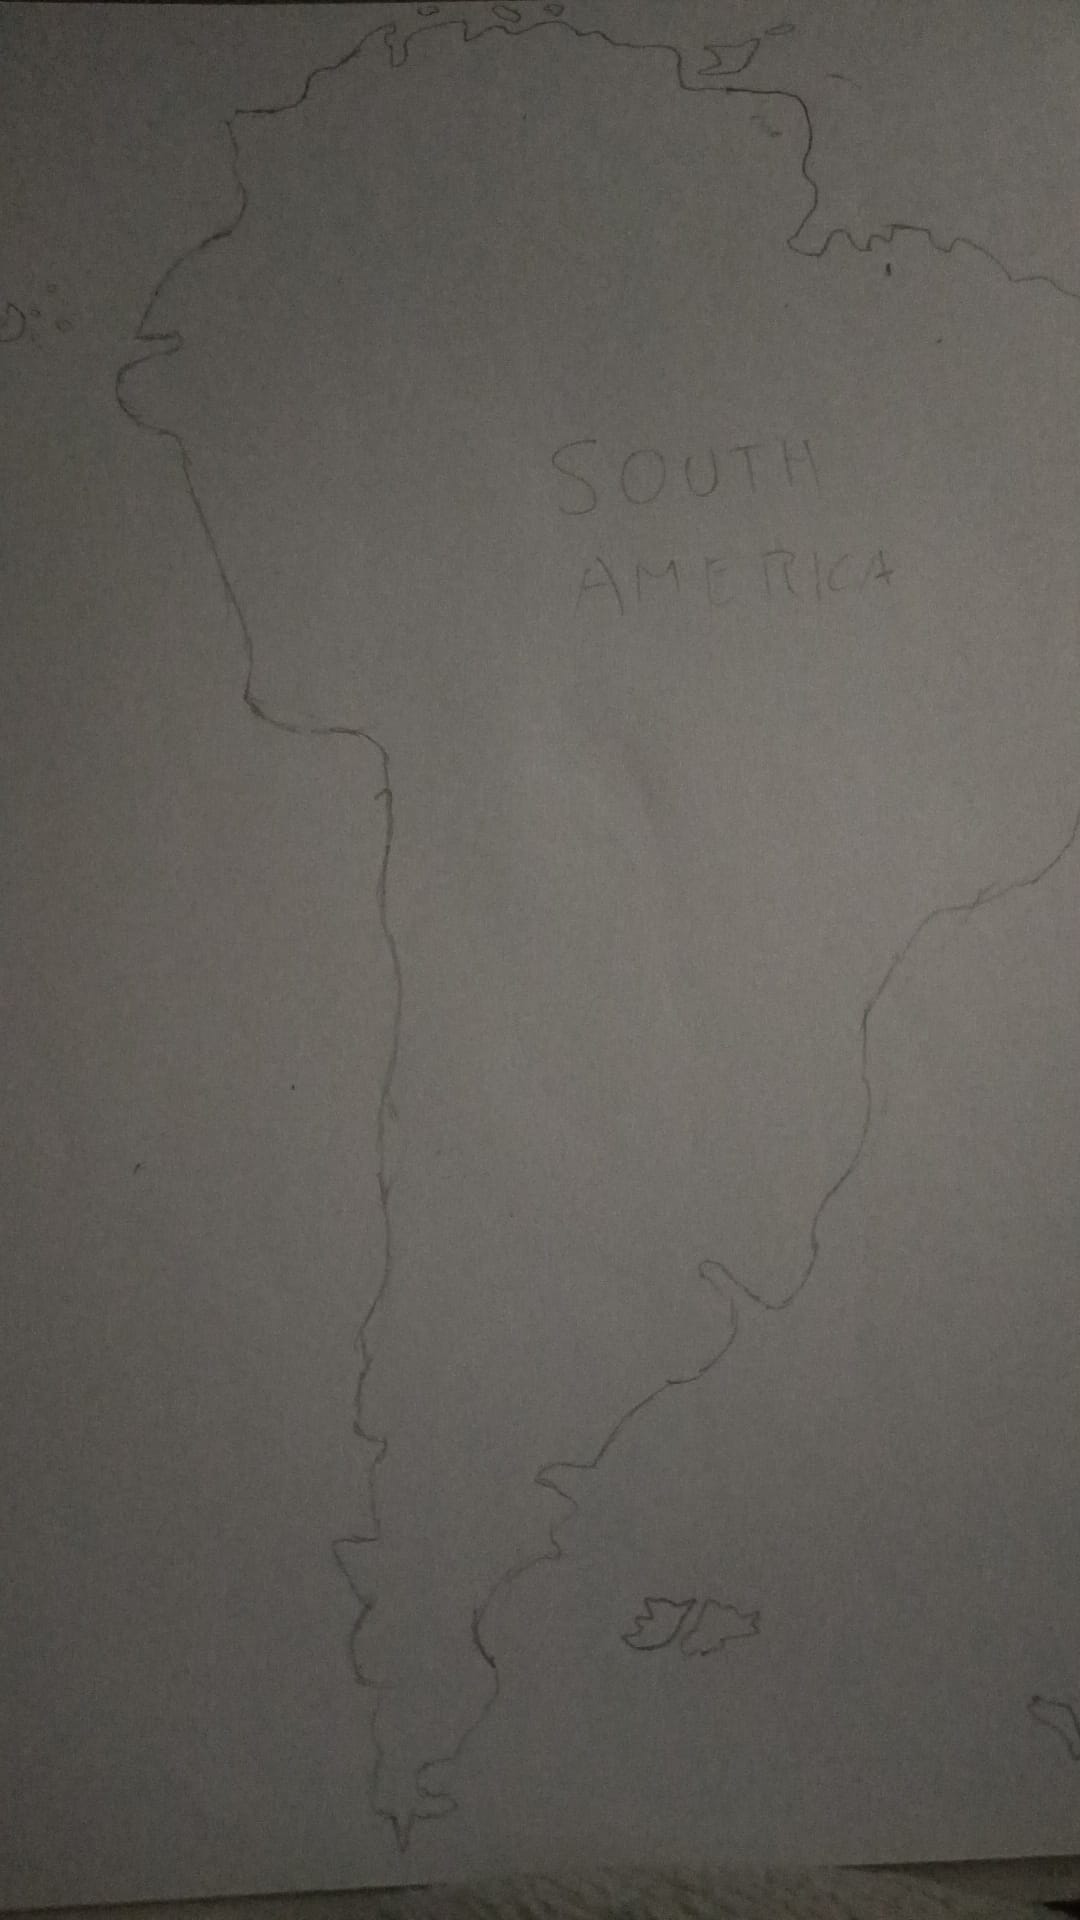 SOUTH
AMERICA